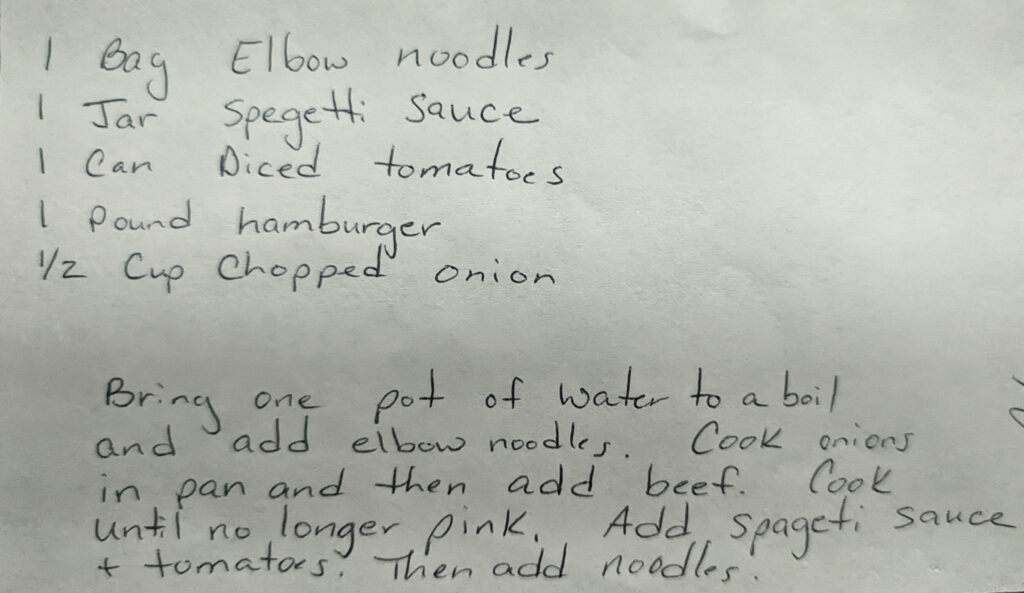 1 Bag Elbow noodles
1 Jar Spegetti Sauce
1 Can Diced tomatoes
1 Pound hamburger
1/2 Cup Chopped onion
Bring one pot of water to a boil
and add elbow noodles. Cook onions
in pan and then add beef. Cook
until no longer pink. Add spageti sauce
+ tomatoes. Then add noodles.